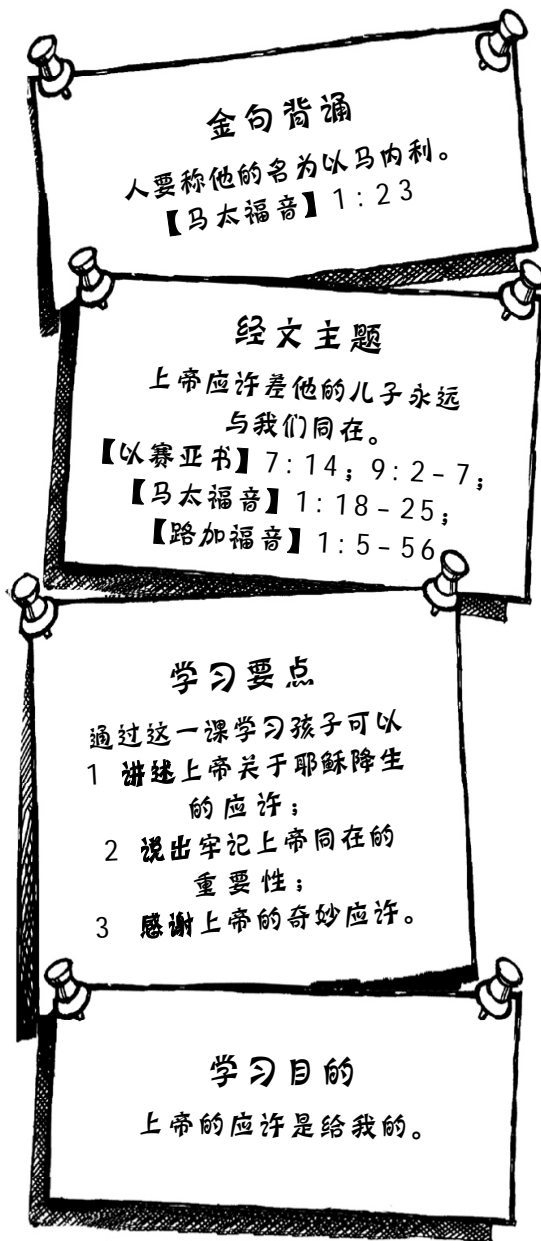 金句背诵
人要称他的名为以马内利。
【马太福音】1:23
经文主题
上帝应许差他的儿子永远
与我们同在。
【以赛亚书】7:14；9:2-7；
【马太福音】1:18-25；
【路加福音】1:5-56
学习要点
通过这一课学习孩子可以
1 讲述上帝关于耶稣降生
的应许；
2 说出牢记上帝同在的
重要性；
3 感谢上帝的奇妙应许。
学习目的
上帝的应许是给我的。